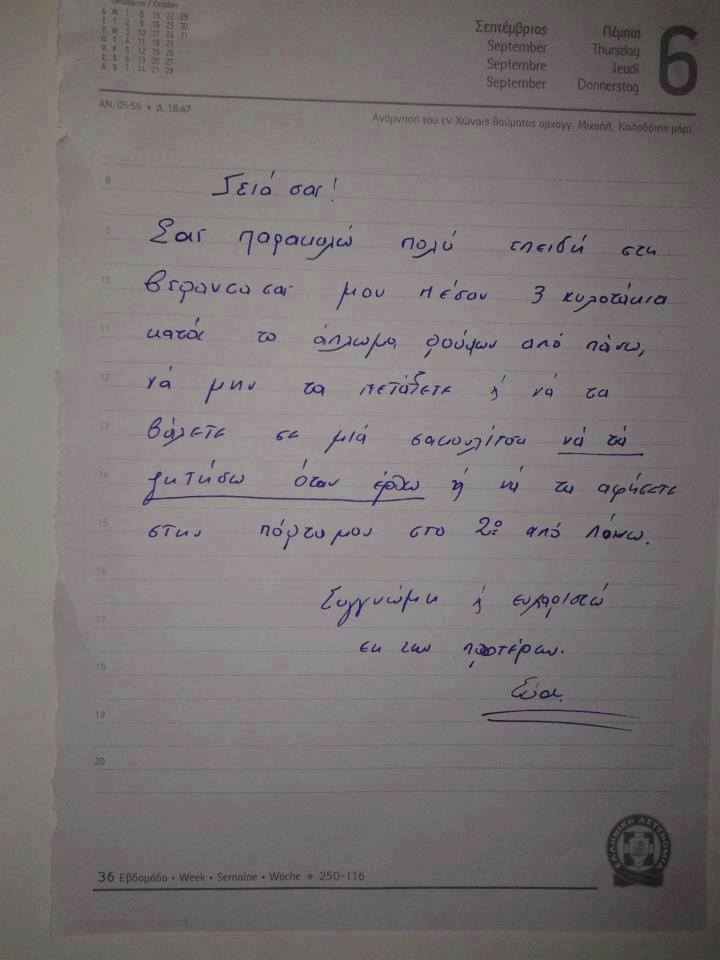 Οκτώβριος / October
Δ M 1 8 15 22 29
Τ T 2 9 16 23 30
Τ W 3 10 17 24 31
Π T 4 11 18 25
Π F 5 12 19 26
Σ S 6 13 20 27
Κ S 7 14 21 28
Σεπτέμβριος Πέμπτη
September Thursday
Septembre Jeudi
September Donnerstag
6
ΑΝ. 05:59 • Δ. 18:47
Ανάμνηση του εν Χώναις θαύματος αρχαγγ. Μιχαήλ, Καλοδότης μάρτ.
8 Γειά σας!
9 Σας παρακαλώ πολύ επειδή στη
10 βεράντα σας μου πέσαν 3 κυλοτάκια
11 κατά το άπλωμα ρούχων από πάνω,
12 νά μην τα πετάξετε ή νά τα
13 βάλετε σε μιά σακουλίτσα νά τά
14 ζητήσω όταν έρθω ή νά τα αφήσετε
15 στην πόρτα μου στο 2ο από πάνω.
16
Συγγνώμη ή ευχαριστώ
17
εκ των προτέρων.
18
Εύα.
19
20
ΕΛΛΗΝΙΚΗ ΑΣΤΥΝΟΜΙΑ
36 Εβδομάδα • Week • Semaine • Woche • 250-116